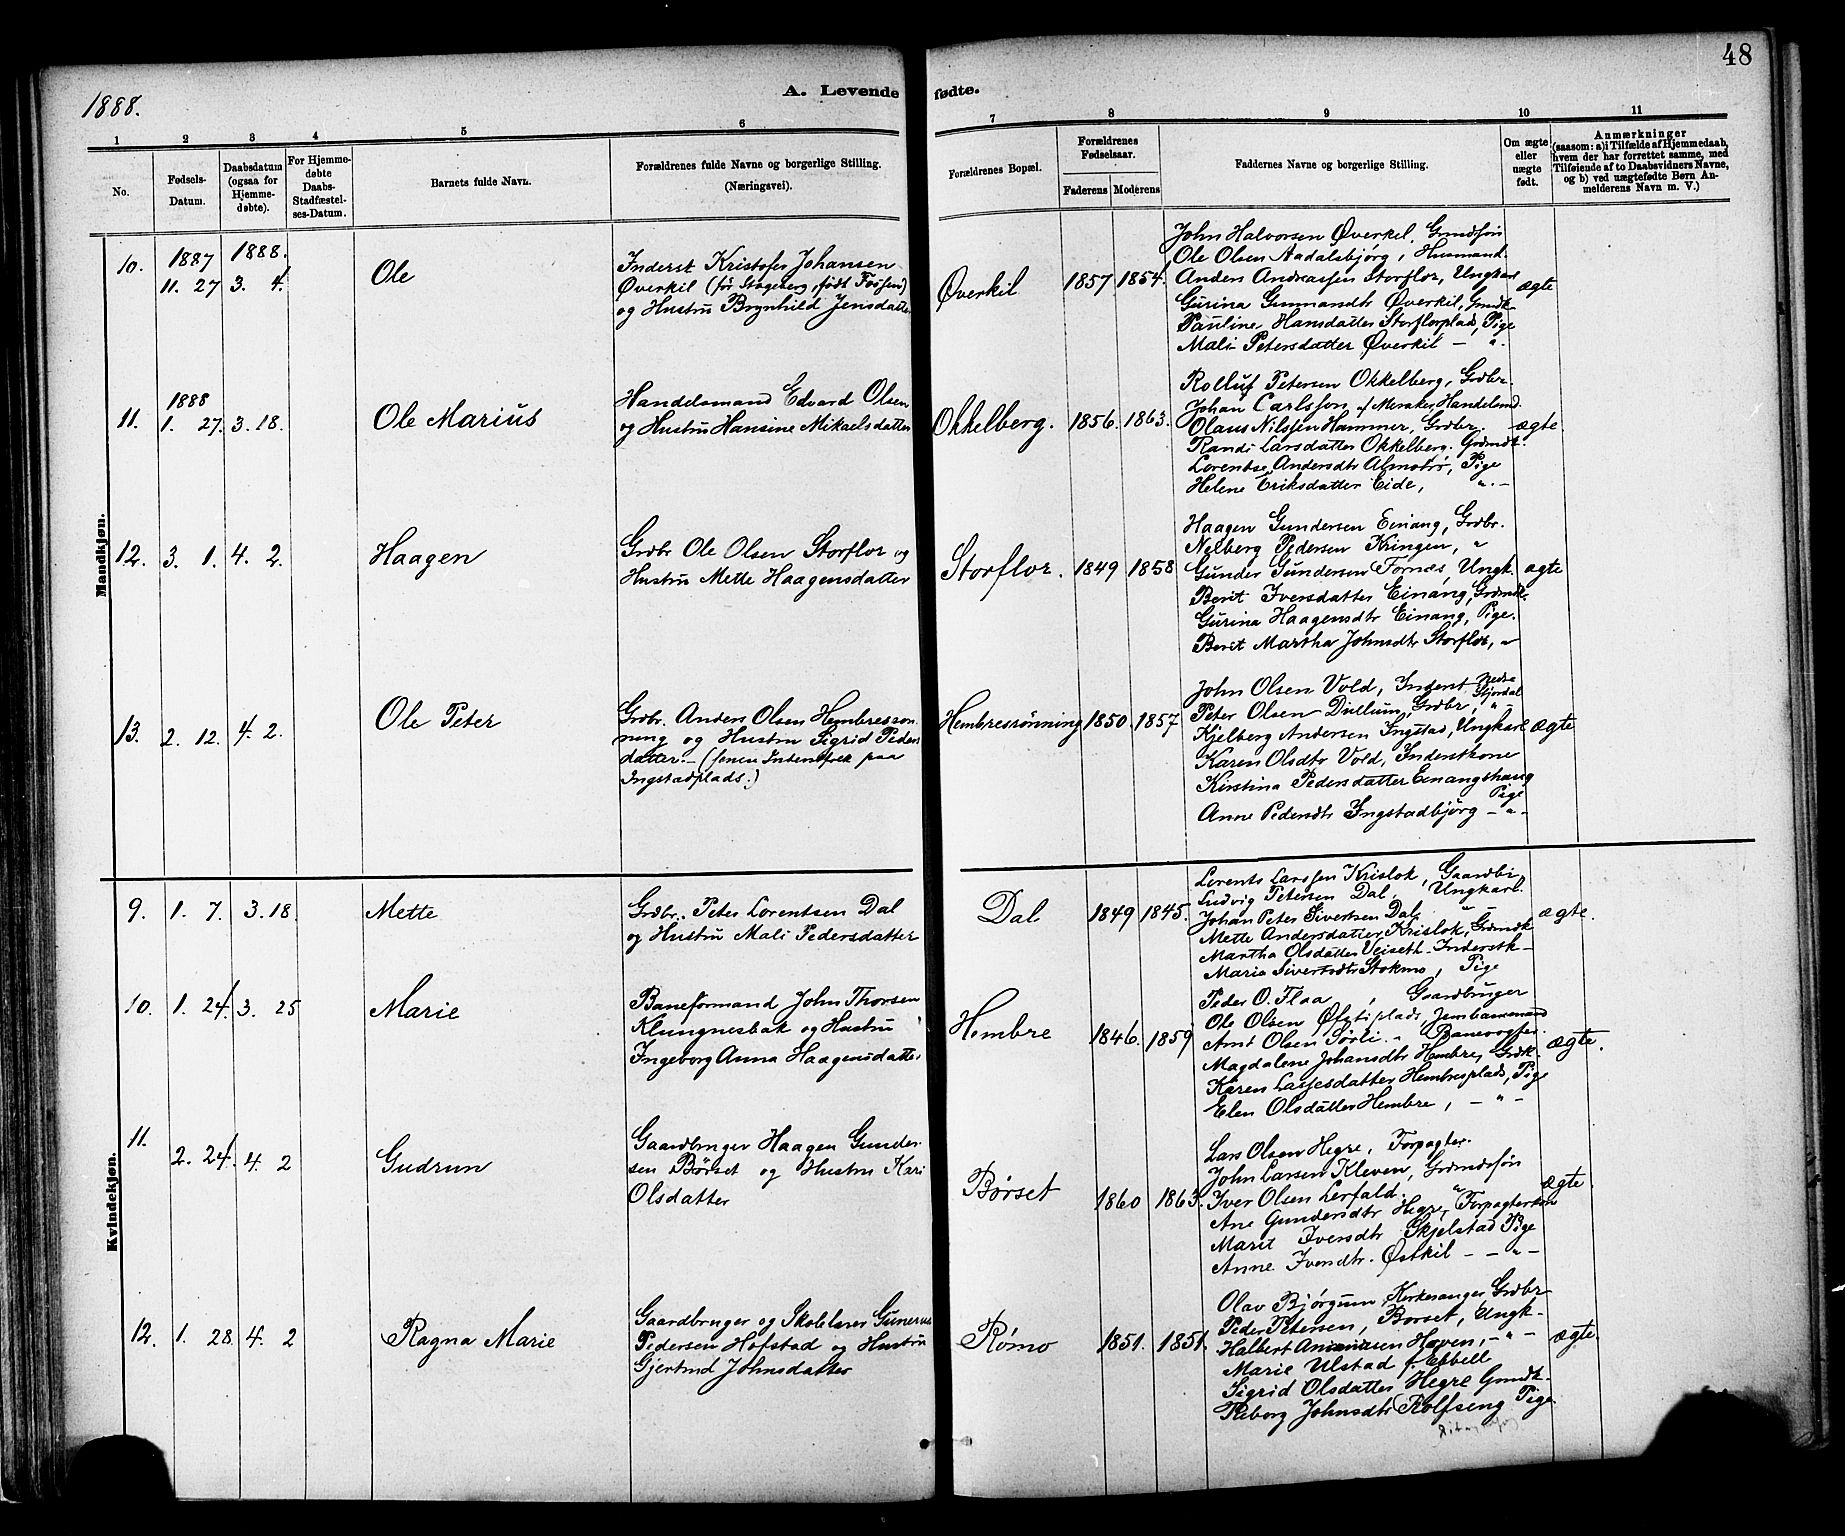 48
1888.
A. Levende fødte.
1 2 3 4 5 6 7 8 9 10 11
No.
Fødsels-
Datum.
Daabsdatum
(ogsaa for
Hjemme-
døbte).
For Hjemme-
døbte
Daabs-
Stadfæstel-
ses-Datum.
Barnets fulde Navn.
Forældrenes fulde Navne og borgerlige Stilling.
(Næringsvei).
Forældrenes Bopæl.
Forældrenes
Fødselsaar.
Faderens Moderens
Faddernes Navne og borgerlige Stilling.
Om ægte
eller
uægte
født.
Anmærkninger
(saasom: a) i Tilfælde af Hjemmedaab,
hvem der har forrettet samme, med
Tilføiende af to Daabsvidners Navne,
og b) ved uægtefødte Børn An-
melderens Navn m. V.)
Mandkjøn.
10.
1887
11. 27
1888.
3. 4.
Ole
Inderst Kristofer Johansen
Øverkil (før Stageberg, født Fossen)
og Hustru Brynhild Jensdatter
Øverkil
1857. 1854.
John Halvorsen Øverkil, Grmdsøn
Ole Olsen Aadalsbjørg, Husmand.
Anders Andreassen Storflor, Ungkarl
Gurina Gunnarsdtr Øverkil, Grmdk
Pauline Hansdatter Storflorplads, Pige
Mali Petersdatter Øverkil — "
ægte
11.
1888
1. 27.
3. 18.
Ole Marius
Handelsmand Edvard Olsen
og Hustru Hansine Mikaelsdatter
Okkelberg.
1856. 1863.
Rolluf Petersen Okkelberg, Grdbr.
Johan Carlsson af Meraker, Handelsmd.
Olaus Nilssen Hammer, Grdbr.
Randi Larsdatter Okkelberg. Grdmdk.
Lorentse Andersdtr Almobrø, Pige
Helene Eriksdatter Eide, " —
ægte
12.
3. 1.
4. 2.
Haagen
Grdbr Ole Olsen Storflor og
Hustru Mette Haagensdatter
Storflor.
1849 1858
Haagen Gundersen Einang, Grdbr.
Nelberg Pedersen Kringen, "
Gunder Gundersen Fornes, Ungk.
Berit Iversdatter Einang, Grdmdk.
Gurina Haagensdtr Einang, Pige.
Berit Martha Johnsdtr Storflor, "
ægte
13.
2. 12.
4. 2.
Ole Peter
Grdbr. Anders Olsen Hembresrøn-
ning og Hustru Sigrid Peders
datter. —
Ingstadplads.)
Hembresrønning
1850. 1857.
John Olsen Vold, Inderst Nedre Stjørdal
Peter Olsen Dullum, Grdbr, "
Kjelberg Andersen Ingstad, Ungkarl
Karen Olsdtr Vold, Inderstkone
Kirstina Pedersdatter Einangshaug
Pige
Anne Pedersdtr Ingstadbjørg — " —
ægte
Kvindekjøn.
9.
1. 7.
3. 18.
Mette
Grdbr. Peter Lorentsen Dal
og Hustru Mali Pedersdatter
Dal
1849 1845.
Lorents Larssen Krislok, Gaardbr.
Ludvig Petersen Dal, Ungkarl.
Johan Peter Sivertsen Dal, "
Mette Andersdatter Krislok, Grdmdk
Martha Olsdatter Veiseth — Inderstk —
Maria Sivertsdtr Stokmo, Pige
ægte.
10.
1. 24.
3. 25
Marie
Baneformand John Thorsen
Klungnesbak og Hustru
Ingeborg Anna Haagensdatter
Hembre
1846. 1859
Peder O. Flaa, Gaardbruger
Ole Olsen Øfstiplads, Jernbanemand
Arnt Olsen Sørli. Banevogter.
Magdalene Johansdtr Hembre, Grdk.
Karen Lassesdatter Hembresplads, Pige
Elen Olsdatter Hembre, — " —
ægte.
11.
2. 24.
4. 2
Gudrun
Gaardbruger Haagen Gunder-
sen Børset og Hustru Kari
Olsdatter
Børset
1860 1863.
Lars Olsen Hegre, Forpagter.
John Larsen Kleven, Grdmdssøn
Iver Olsen Lerfald. "
Ane Gundersdtr Hegre, Forpagterkon
Marit Iversdtr Skjelstad Pige
Anne Iversdtr. Østkil — — " —
ægte.
12.
1. 28.
4. 2
Ragna Marie
Gaardbruger og Skolelærer Gunerus
Pedersen Hofstad og Hustru
Gjertrud Johnsdatter
Rømo
1851. 1851.
Olav Bjørgum, Kirkesanger Grdbr
Peder Petersen, Børset, Ungk —
Halbert Hoven, — " —
Marie Ulstad f. Esbell
Sigrid Olsdatter Hegre Grmdk.
Johnsdtr Rolfseng Pige
ægte.